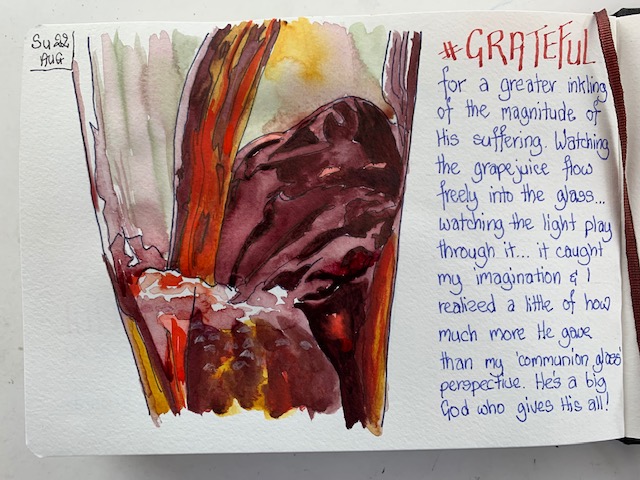 Su 22
AUG
#GRATEFUL
for a greater inkling
of the magnitude of
His suffering. Watching
the grapejuice flow
freely into the glass...
watching the light play
through it... it caught
my imagination & I
realized a little of how
much more He gave
than my 'communion glass'
perspective. He's a big
God who gives His all!